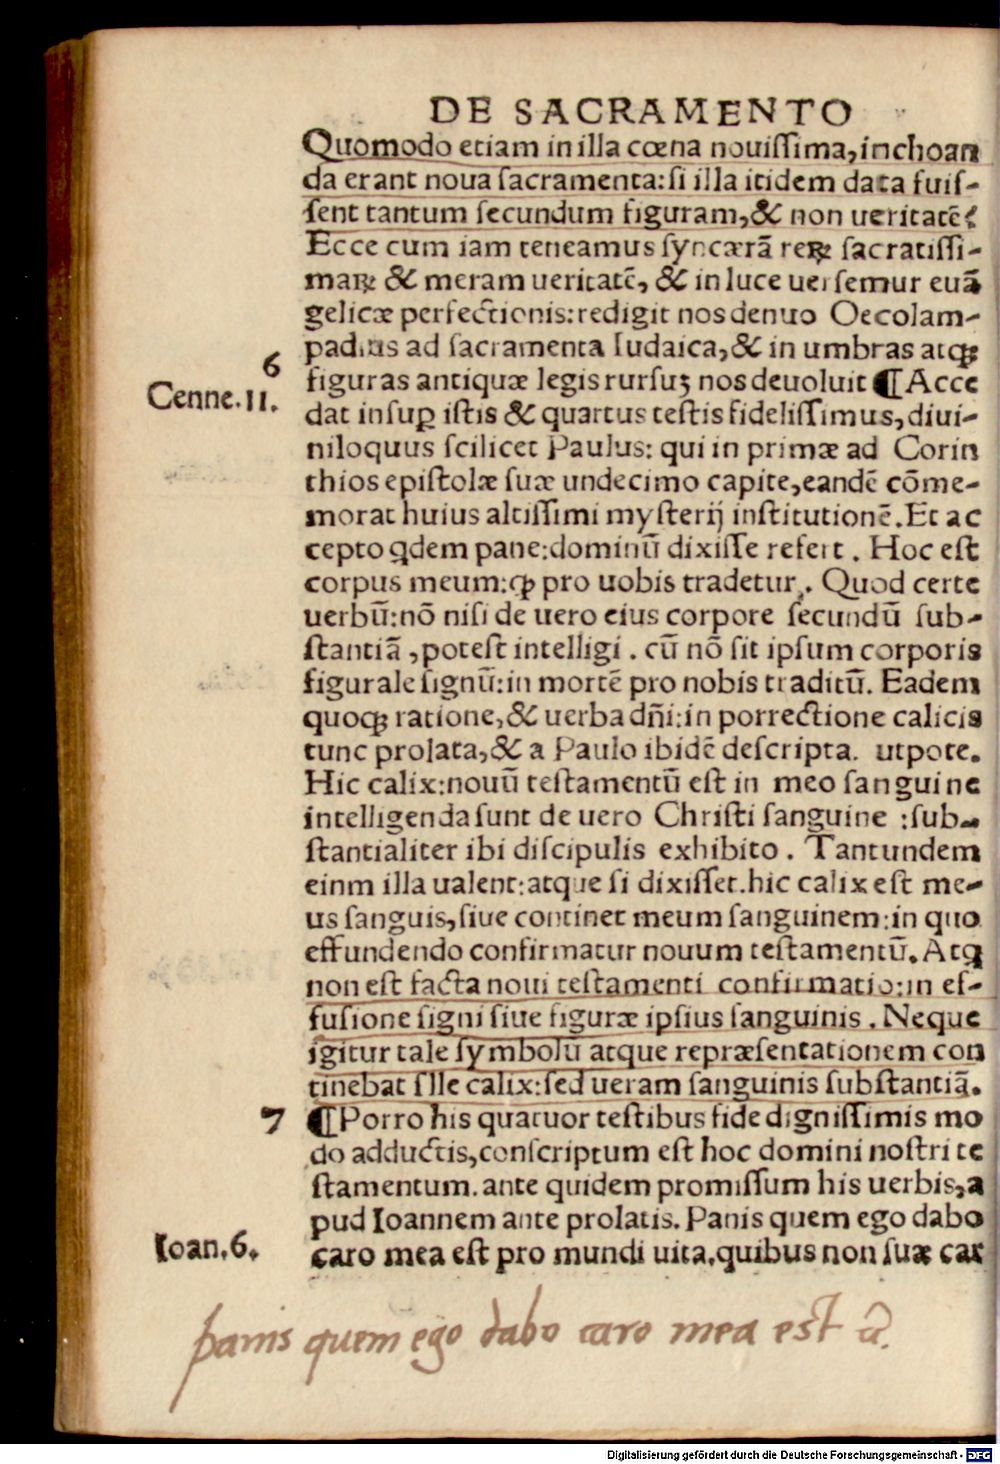 DE SACRAMENTO
Quomodo etiam in illa cœna nouiſſima, inchoan
da erant noua ſacramenta: ſi illa itidem data fuiſ-
ſent tantum ſecundum figuram, & non ueritatē?
Ecce cum iam teneamus ſyncærā reꝝ ſacratiſſi-
maꝝ & meram ueritatē, & in luce uerſemur euā
gelicæ perfectionis: redigit nos denuo Oecolam-
padius ad ſacramenta Iudaica, & in umbras atqꝫ
6
figuras antiquæ legis rurſuꝫ nos deuoluit ¶ Acce
Cenne. 11.
dat inſuꝑ iſtis & quartus teſtis fideliſſimus, diui-
niloquus ſcilicet Paulus: qui in primæ ad Corin
thios epiſtolæ ſuæ undecimo capite, eandē cōme-
morat huius altiſſimi myſterij inſtitutionē. Et ac
cepto qdem pane: dominū dixiſſe refert. Hoc eſt
corpus meum: ꝙ pro uobis tradetur. Quod certe
uerbū: nō niſi de uero eius corpore ſecundū ſub-
ſtantiā, poteſt intelligi. cū nō ſit ipſum corporis
figurale ſignū: in mortē pro nobis traditū. Eadem
quoqꝫ ratione, & uerba dñi: in porrectione calicis
tunc prolata, & a Paulo ibidē deſcripta. utpote.
Hic calix: nouū teſtamentū eſt in meo ſanguine
intelligenda ſunt de uero Chriſti ſanguine : ſub-
ſtantialiter ibi diſcipulis exhibito. Tantundem
einm illa ualent: atque ſi dixiſſet. hic calix eſt me-
us ſanguis, ſiue continet meum ſanguinem: in quo
effundendo confirmatur nouum teſtamentū. Atq
non eſt facta noui teſtamenti confirmatio: in ef-
fuſione ſigni ſiue figuræ ipſius ſanguinis. Neque
igitur tale ſymbolū atque repræſentationem con
tinebat ſlle calix: ſed ueram ſanguinis ſubſtantiā.
7 ¶ Porro his quatuor teſtibus fide digniſſimis mo
do adductis, conſcriptum eſt hoc domini noſtri te
ſtamentum. ante quidem promiſſum his uerbis, a
pud Ioannem ante prolatis. Panis quem ego dabo
Ioan. 6.
caro mea eſt pro mundi uita. quibus non ſuæ car
panis quem ego dabo caro mea est
Digitalisierung gefördert durch die Deutsche Forschungsgemeinschaft - DFG